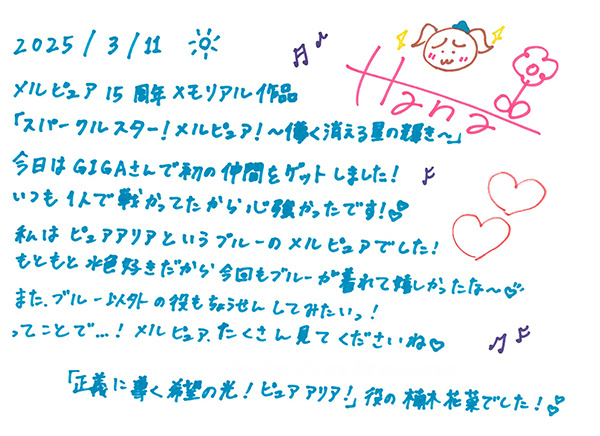 2025/3/11
Hana
メルピュア15周年メモリアル作品
「スパークルスター!メルピュア!~儚く消える星の輝き~」
今日はGIGAさんで初の仲間をゲットしました!
いつも1人で戦かってたから心強かったです!
私はピュアアリアというブルーのメルピュアでした!
もともと水色好きだから今回もブルーが着れて嬉しかったな~
また、ブルー以外の役もちょうせんしてみたいっ!
ってことで…!メルピュア、たくさん見てくださいね♡
「正義に導く希望の光!ピュアアリア!」役の 木花菜でした!